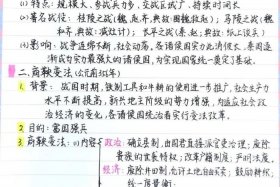 (1) 特点：规模大、参战兵力多、交战区域扩大、持续时间长
(2) 著名战役：桂陵之战(魏、赵齐，典故：围魏救赵)；马陵之战(魏
和齐，典故：减灶计)；长平之战(秦、赵；典故：纸上谈兵)
(3) 影响：战争连绵不断，社会动荡，各诸侯国实力此消彼长，秦国逐
渐成为实力最强大的诸侯国，为实现国家统一奠定了基础。
二、商鞅变法(公元前356年)
1. 背景：战国时期，铁制工具和牛耕的使用进一步推广，社会生产力
水平不断提高，新兴地主阶级的势力增强，为适应社会政
治经济的变化，各诸侯国统治者实行变法改革
2. 目的：富国强兵
3. 商鞅变法：(1)内容 政治：确立县制，由国君直接派官吏治理；废除
贵族的世袭特权；改革户籍制度，严明
经济：废除井田制，允许土地自由买卖；鼓励耕织
统一度量衡